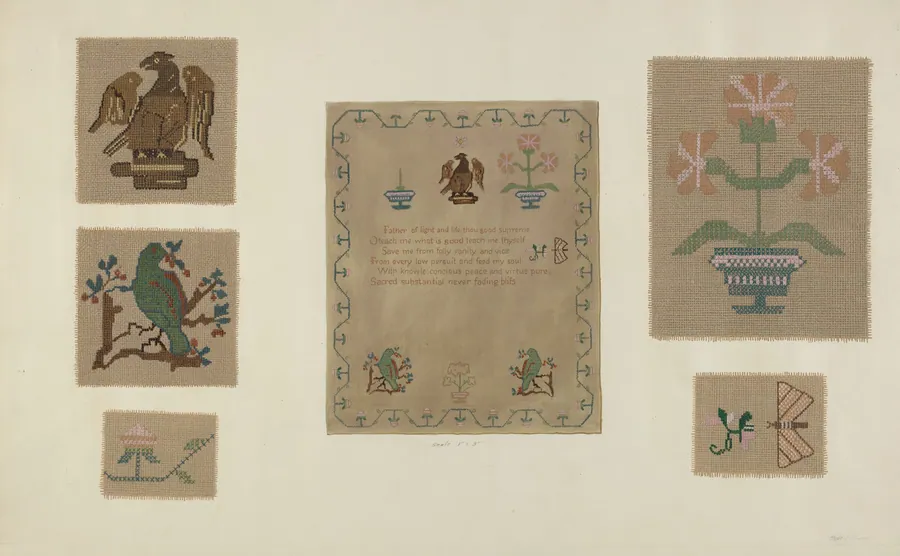 Father of light and life thou good supreme
O teach me what is good teach me thyself
Save me from folly vanity and vice
From every low pursuit and feed my soul
With knowle conscious peace and virtue pure
Sacred substantial never fading bliss